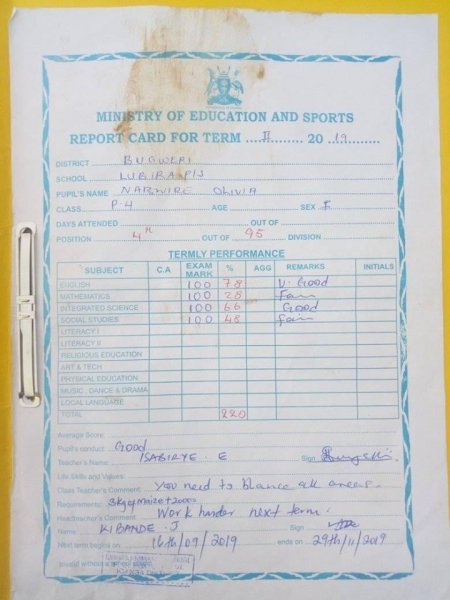 MINISTRY OF EDUCATION AND SPORTS
REPORT CARD FOR TERM II 2019
DISTRICT BUGWERI
SCHOOL LUBIRA P/S
PUPIL'S NAME NABWIRE Olivia
CLASS P.4 AGE SEX F
DAYS ATTENDED OUT OF
POSITION 4th OUT OF 95 DIVISION
TERMLY PERFORMANCE
SUBJECT C.A EXAM MARK % AGG REMARKS INITIALS
ENGLISH 100 78 V. Good
MATHEMATICS 100 28 Fair
INTEGRATED SCIENCE 100 66 Good
SOCIAL STUDIES 100 48 Fair
LITERACY I
LITERACY II
RELIGIOUS EDUCATION
ART & TECH
PHYSICAL EDUCATION
MUSIC, DANCE & DRAMA
LOCAL LANGUAGE
TOTAL 220
Average Score:
Pupil's conduct: Good
Teacher's Name: ISABIRYE. E Sign
Life Skills and Values:
Class Teacher's Comment: You need to blance all areas.
Requirements: 3kg of maize + 2000
Headteacher's Comment: Work harder next term.
Name: KIBANDE. J Sign
Next term begins on 16th/09/2019 ends on 29th/11/2019
Invalid without a school stamp